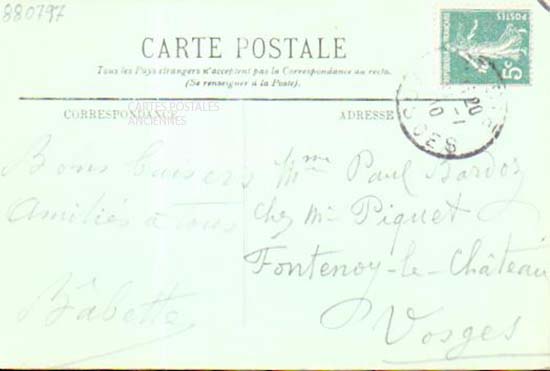 880797
CARTE POSTALE
Tous les Pays étrangers n'acceptent pas la Correspondance au recto.
(Se renseigner à la Poste).
CORRESPONDANCE
ADRESSE
CARTES POSTALES
ANCIENNES
POSTES
RÉPUBLIQUE FRANÇAISE
5c
20-1
10
Bons baisers
Amitiés à tous
Babette
Mme Paul Bardoz
chez Mr Piquet
Fontenoy-le-Château
Vosges